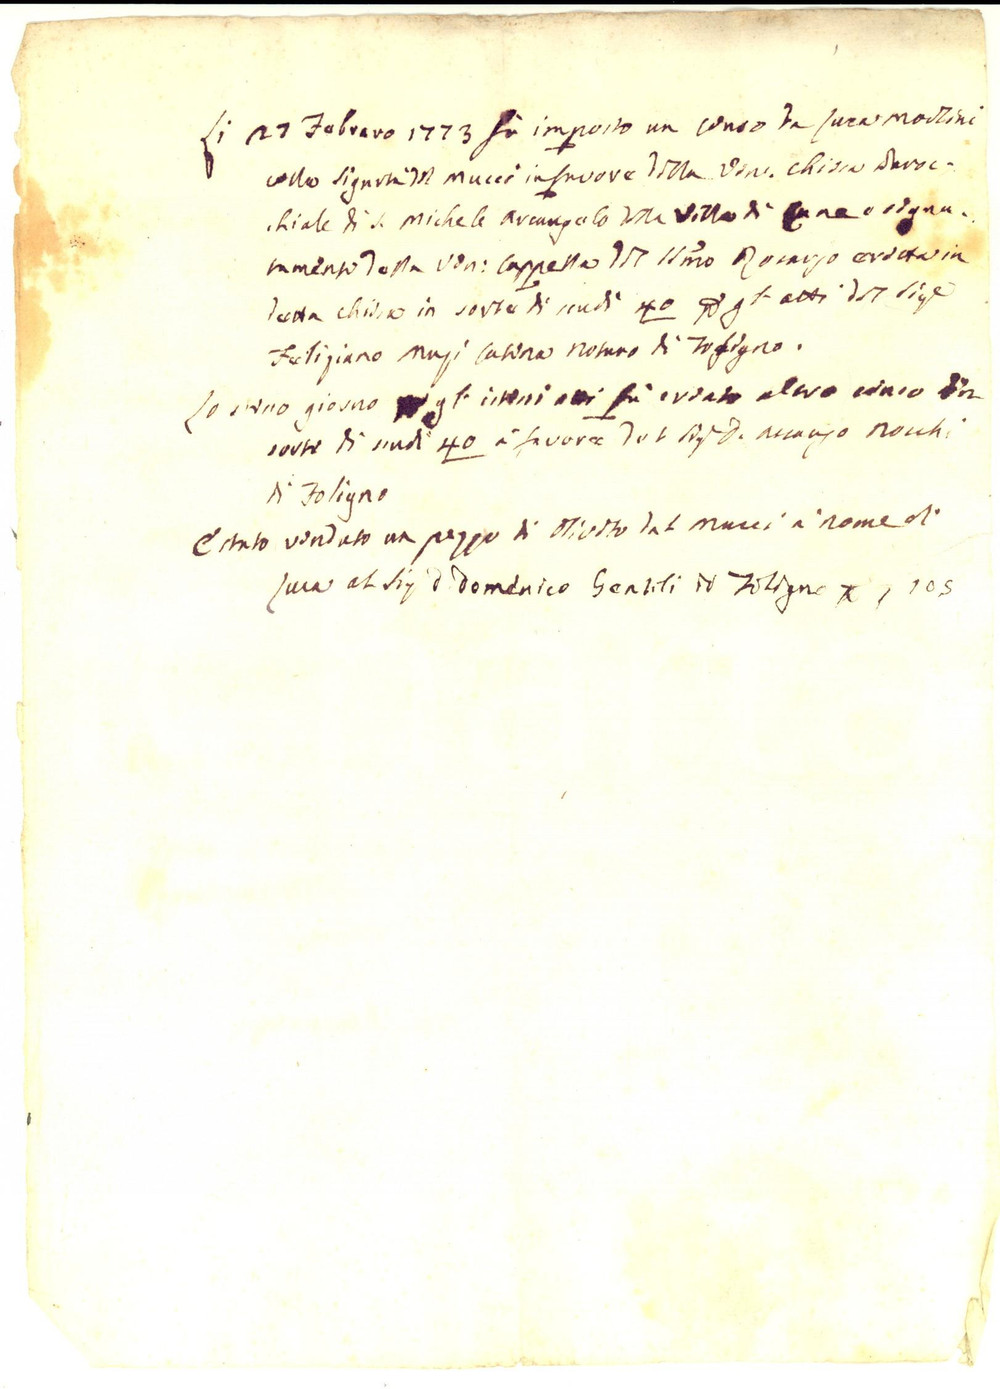 Li 27 Febraro 1773 fù imposto un censo da Luca
colla sigurtà del Mucci in favore della Ven. Chiesa Paroc=
chiale di S. Michele Arcangelo della Villa di e signa=
tamente della Ven: Cappella del SSmo Rosario eretta in
detta Chiesa in sorte di scudi 40 gl' atti del Sigr
Feliziano Notaro di Foligno.
Lo stesso giorno gl' istessi atti fù creato altro censo in
sorte di scudi 40 à favore del Sigr D. Rocchi
di Foligno
È stato venduto un pezzo di Oliveto dal Mucci à nome di
Luca al Sigr D. Domenico Gentili di Foligno 105